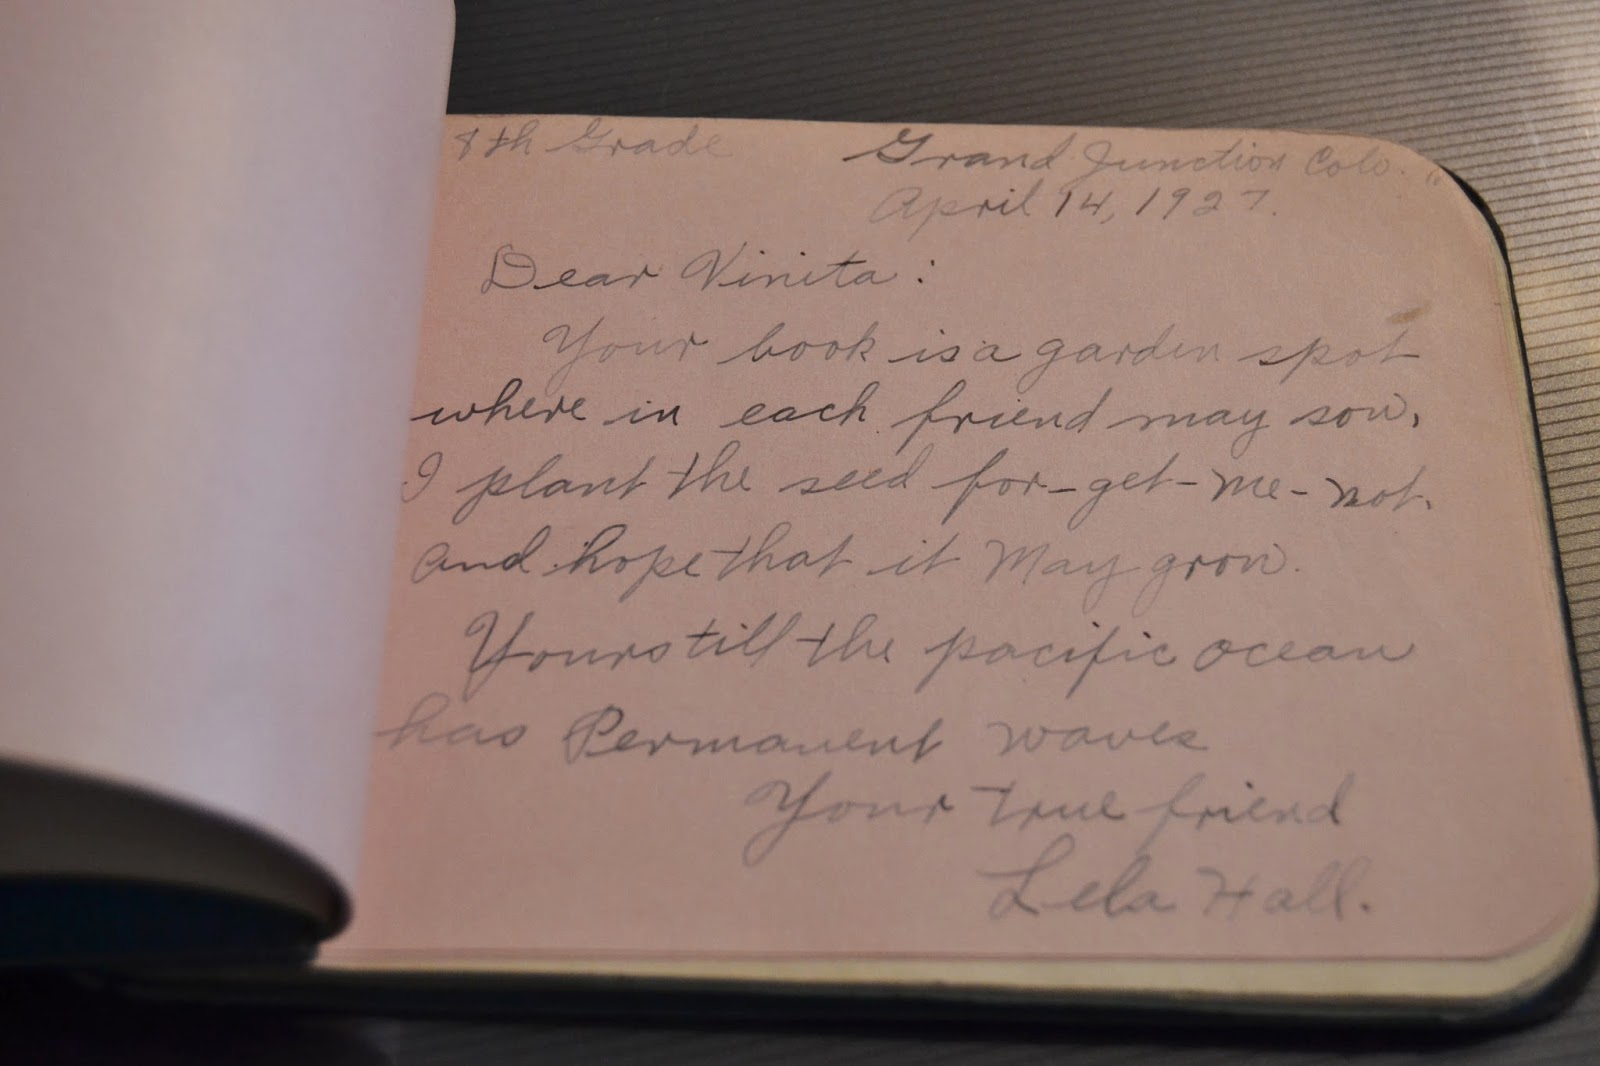 8th Grade Grand Junction Colo. "
April 14, 1927.
Dear Vinita:
Your book is a garden spot
where in each friend may sow,
I plant the seed for-get-me-not.
and hope that it May grow.
Yours till the pacific ocean
has Permanent waves
Your true friend
Lela Hall.